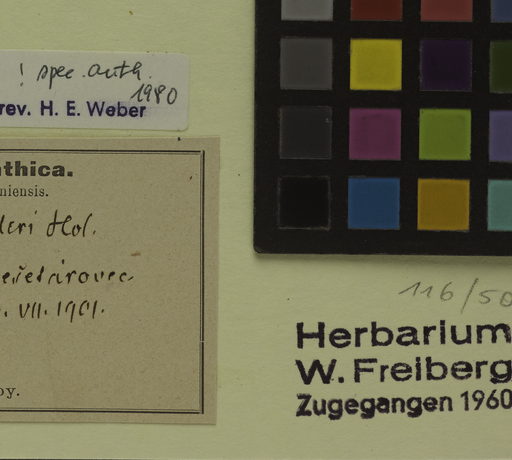 ! spec. auth.
1980
rev. H. E. Weber
thica.
niensis.
deri Hol.
VII. 1901.
oy.
116/50
Herbarium
W. Freiberg
Zugegangen 1960